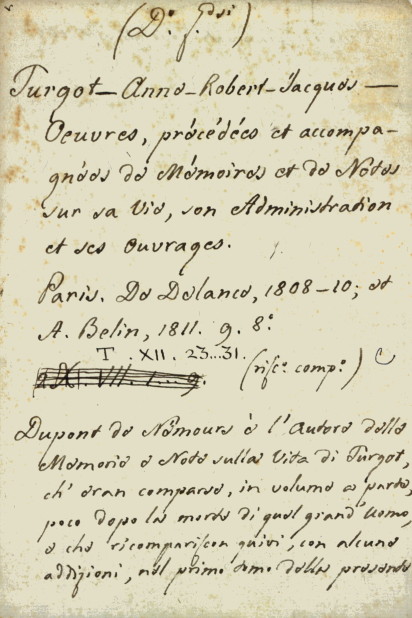 (D.r f. Gdsi)
Turgot — Anne-Robert-Jacques —
Oeuvres, précédées et accompa-
gnées de Mémoires et de Notes
sur sa Vie, son Administration
et ses Ouvrages.
Paris. De Delance, 1808-10; et
A. Belin, 1811. 9. 8.°
T. XII. 23...31.
(rifc.° comp.°)
Dupont de Némours è l'Autore delle
Memorie e Note sulla Vita di Turgot,
ch' eran comparse, in volume a parte,
poco dopo la morte di quel grand'Uomo,
e che ricompariscon quivi, con alcune
addizioni, nel primo tomo della presente